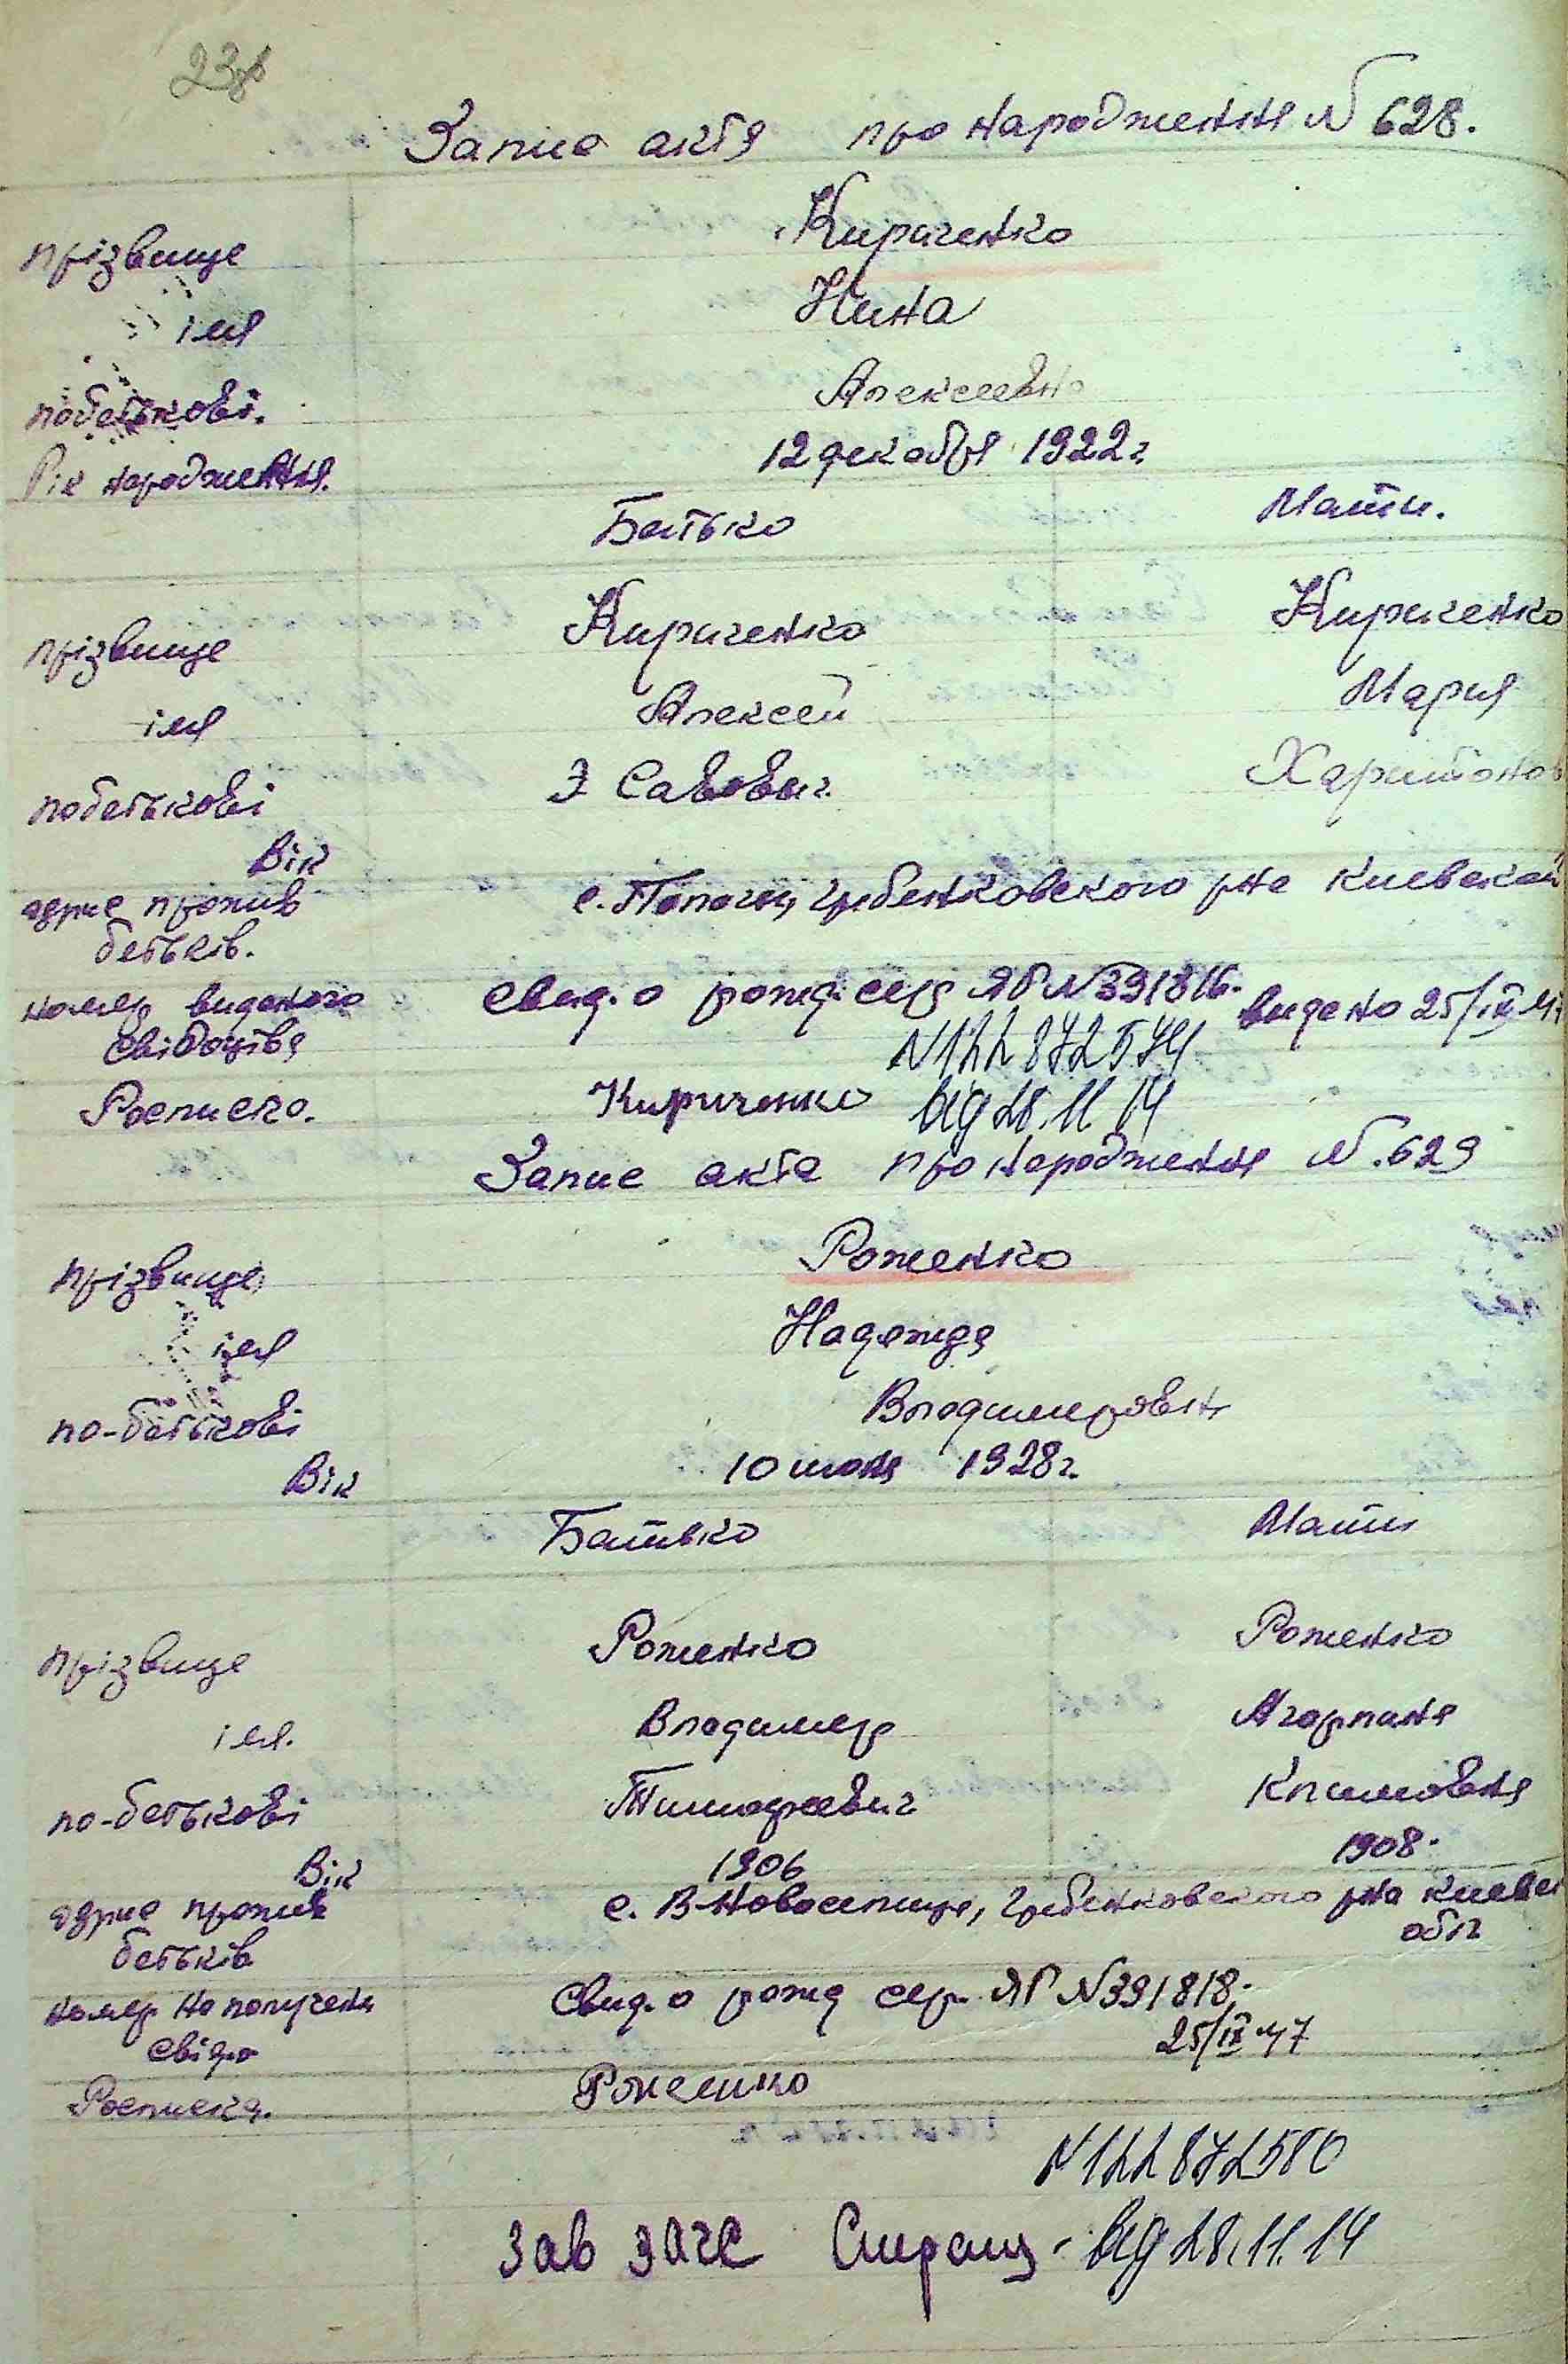 Запис акта про народження N 628.
прізвище Кириченко
імя Нина
побатькові. Алексеевна
Рік народження. 12 декабря 1922 г.
Батько Мати.
прізвище Кириченко Кириченко
імя Алексей Мария
побатькові Савович Харитонов
Вік
адрис прожив с. гребенковского р-на Киевской
батьків.
номер виданого Свид. о рожд. сер ЯР N 391816. видано 25/IX 47
Свідоцтва N 122872574
Росписка. Кириченко від 28.11 14
Запис акта про народження N. 629
прізвище Роженко
імя Надежда
по-батькові Владимировн
Вік 10 июня 1928 г.
Батько Мати
прізвище Роженко Роженко
імя. Владимир
по-батькові Тимофеевич Климовна
Вік 1906 1908.
адрис прожив с. В-Новоселица, гребенковского р-на Киевск
батьків обл
номер на получен Свид. о рожд сер. ЯР N 391818.
свідо 25/IX 47
Росписка. Роженко
N 122872580
Зав ЗАГС від 28.11.14